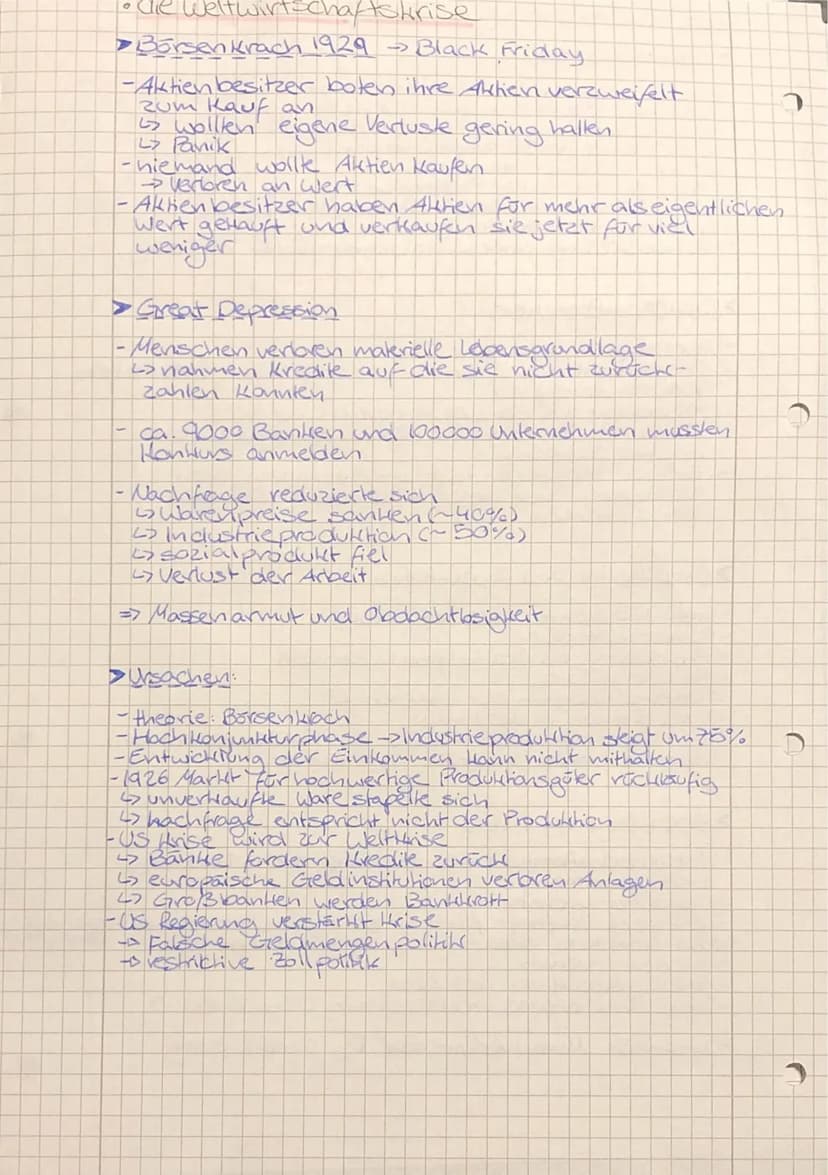 • die Weltwirtschaftskrise
➤ Börsenkrach 1929 → Black Friday
- Aktienbesitzer boten ihre Aktien verzweifelt
zum Kauf an
↳ wollten eigene Verluste gering halten
↳ Panik
- niemand wollte Aktien kaufen
→ verloren an Wert
- Aktienbesitzer haben Aktien für mehr als eigentlichen
Wert gekauft und verkaufen sie jetzt für viel
weniger
➤ Great Depression
- Menschen verloren materielle Lebensgrundlage
↳ nahmen Kredite auf die sie nicht zurück-
zahlen konnten
- ca. 9000 Banken und 100000 Unternehmen mussten
Konkurs anmelden
- Nachfrage reduzierte sich
↳ Warenpreise sanken (~40%)
↳ Industrieproduktion (~50%)
↳ sozialprodukt fiel
↳ Verlust der Arbeit
=> Massenarmut und Obdachtlosigkeit
➤ Ursachen:
- theorie: Börsenkrach
- Hochkonjunkturphase → Industrieproduktion steigt um 75%
- Entwicklung der Einkommen kann nicht mithalten
- 1926 Markt für hochwertige Produktionsgüter rückläufig
↳ unverkaufte Ware stapelte sich
↳ nachfrage entspricht nicht der Produktion
- US Krise wird zur Weltkrise
↳ Bänke fordern Kredite zurück
↳ europäische Geldinstitutionen verloren Anlagen
↳ Großbanken werden Bankkrott
- US Regierung verstärkt Krise
→ Falsche Geldmengenpolitik
→ restriktive Zollpolitik